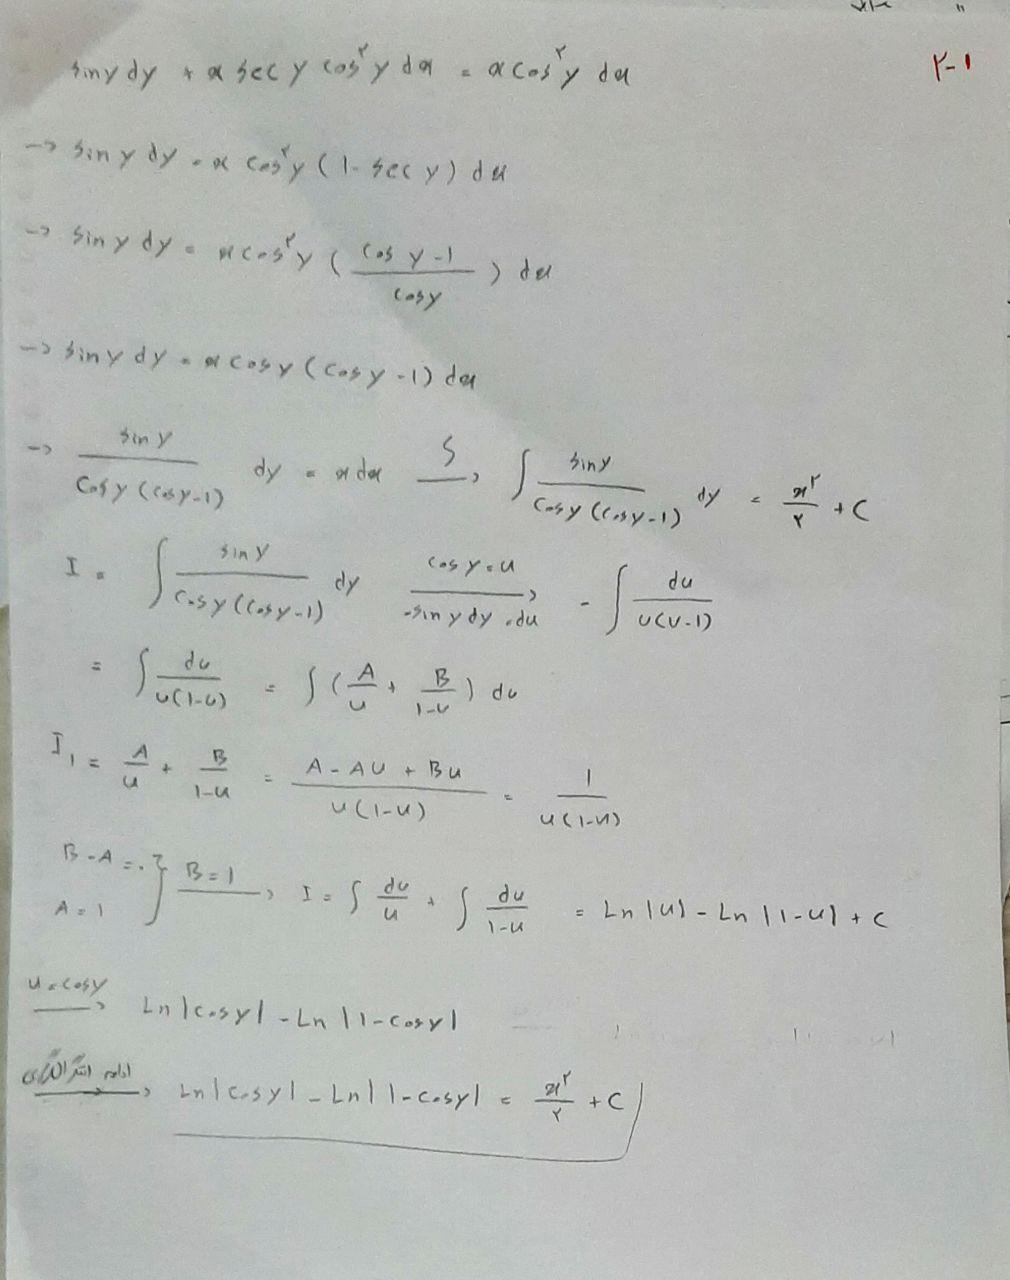 ۲-۱
sin y dy + x sec y cos²y dx = x cos²y dx
→ sin y dy = x cos²y (1 - sec y) dx
→ sin y dy = x cos²y ( (cos y - 1) / cos y ) dx
→ sin y dy = x cos y (cos y - 1) dx
→ sin y / (cos y (cos y - 1)) dy = x dx —∫→ ∫ sin y / (cos y (cos y - 1)) dy = x^۲/۲ + C
I = ∫ sin y / (cos y (cos y - 1)) dy —(cos y = u, -sin y dy = du)→ - ∫ du / (u(u-1))
= ∫ du / (u(1-u)) = ∫ (A/u + B/(1-u)) du
I₁ = A/u + B/(1-u) = (A - Au + Bu) / (u(1-u)) = 1 / (u(1-u))
B - A = ۰ , A = 1 } —B = 1→ I = ∫ du/u + ∫ du/(1-u) = Ln|u| - Ln|1-u| + C
—u = cos y→ Ln|cos y| - Ln|1 - cos y|
—ادامه→ Ln|cos y| - Ln|1 - cos y| = x^۲/۲ + C